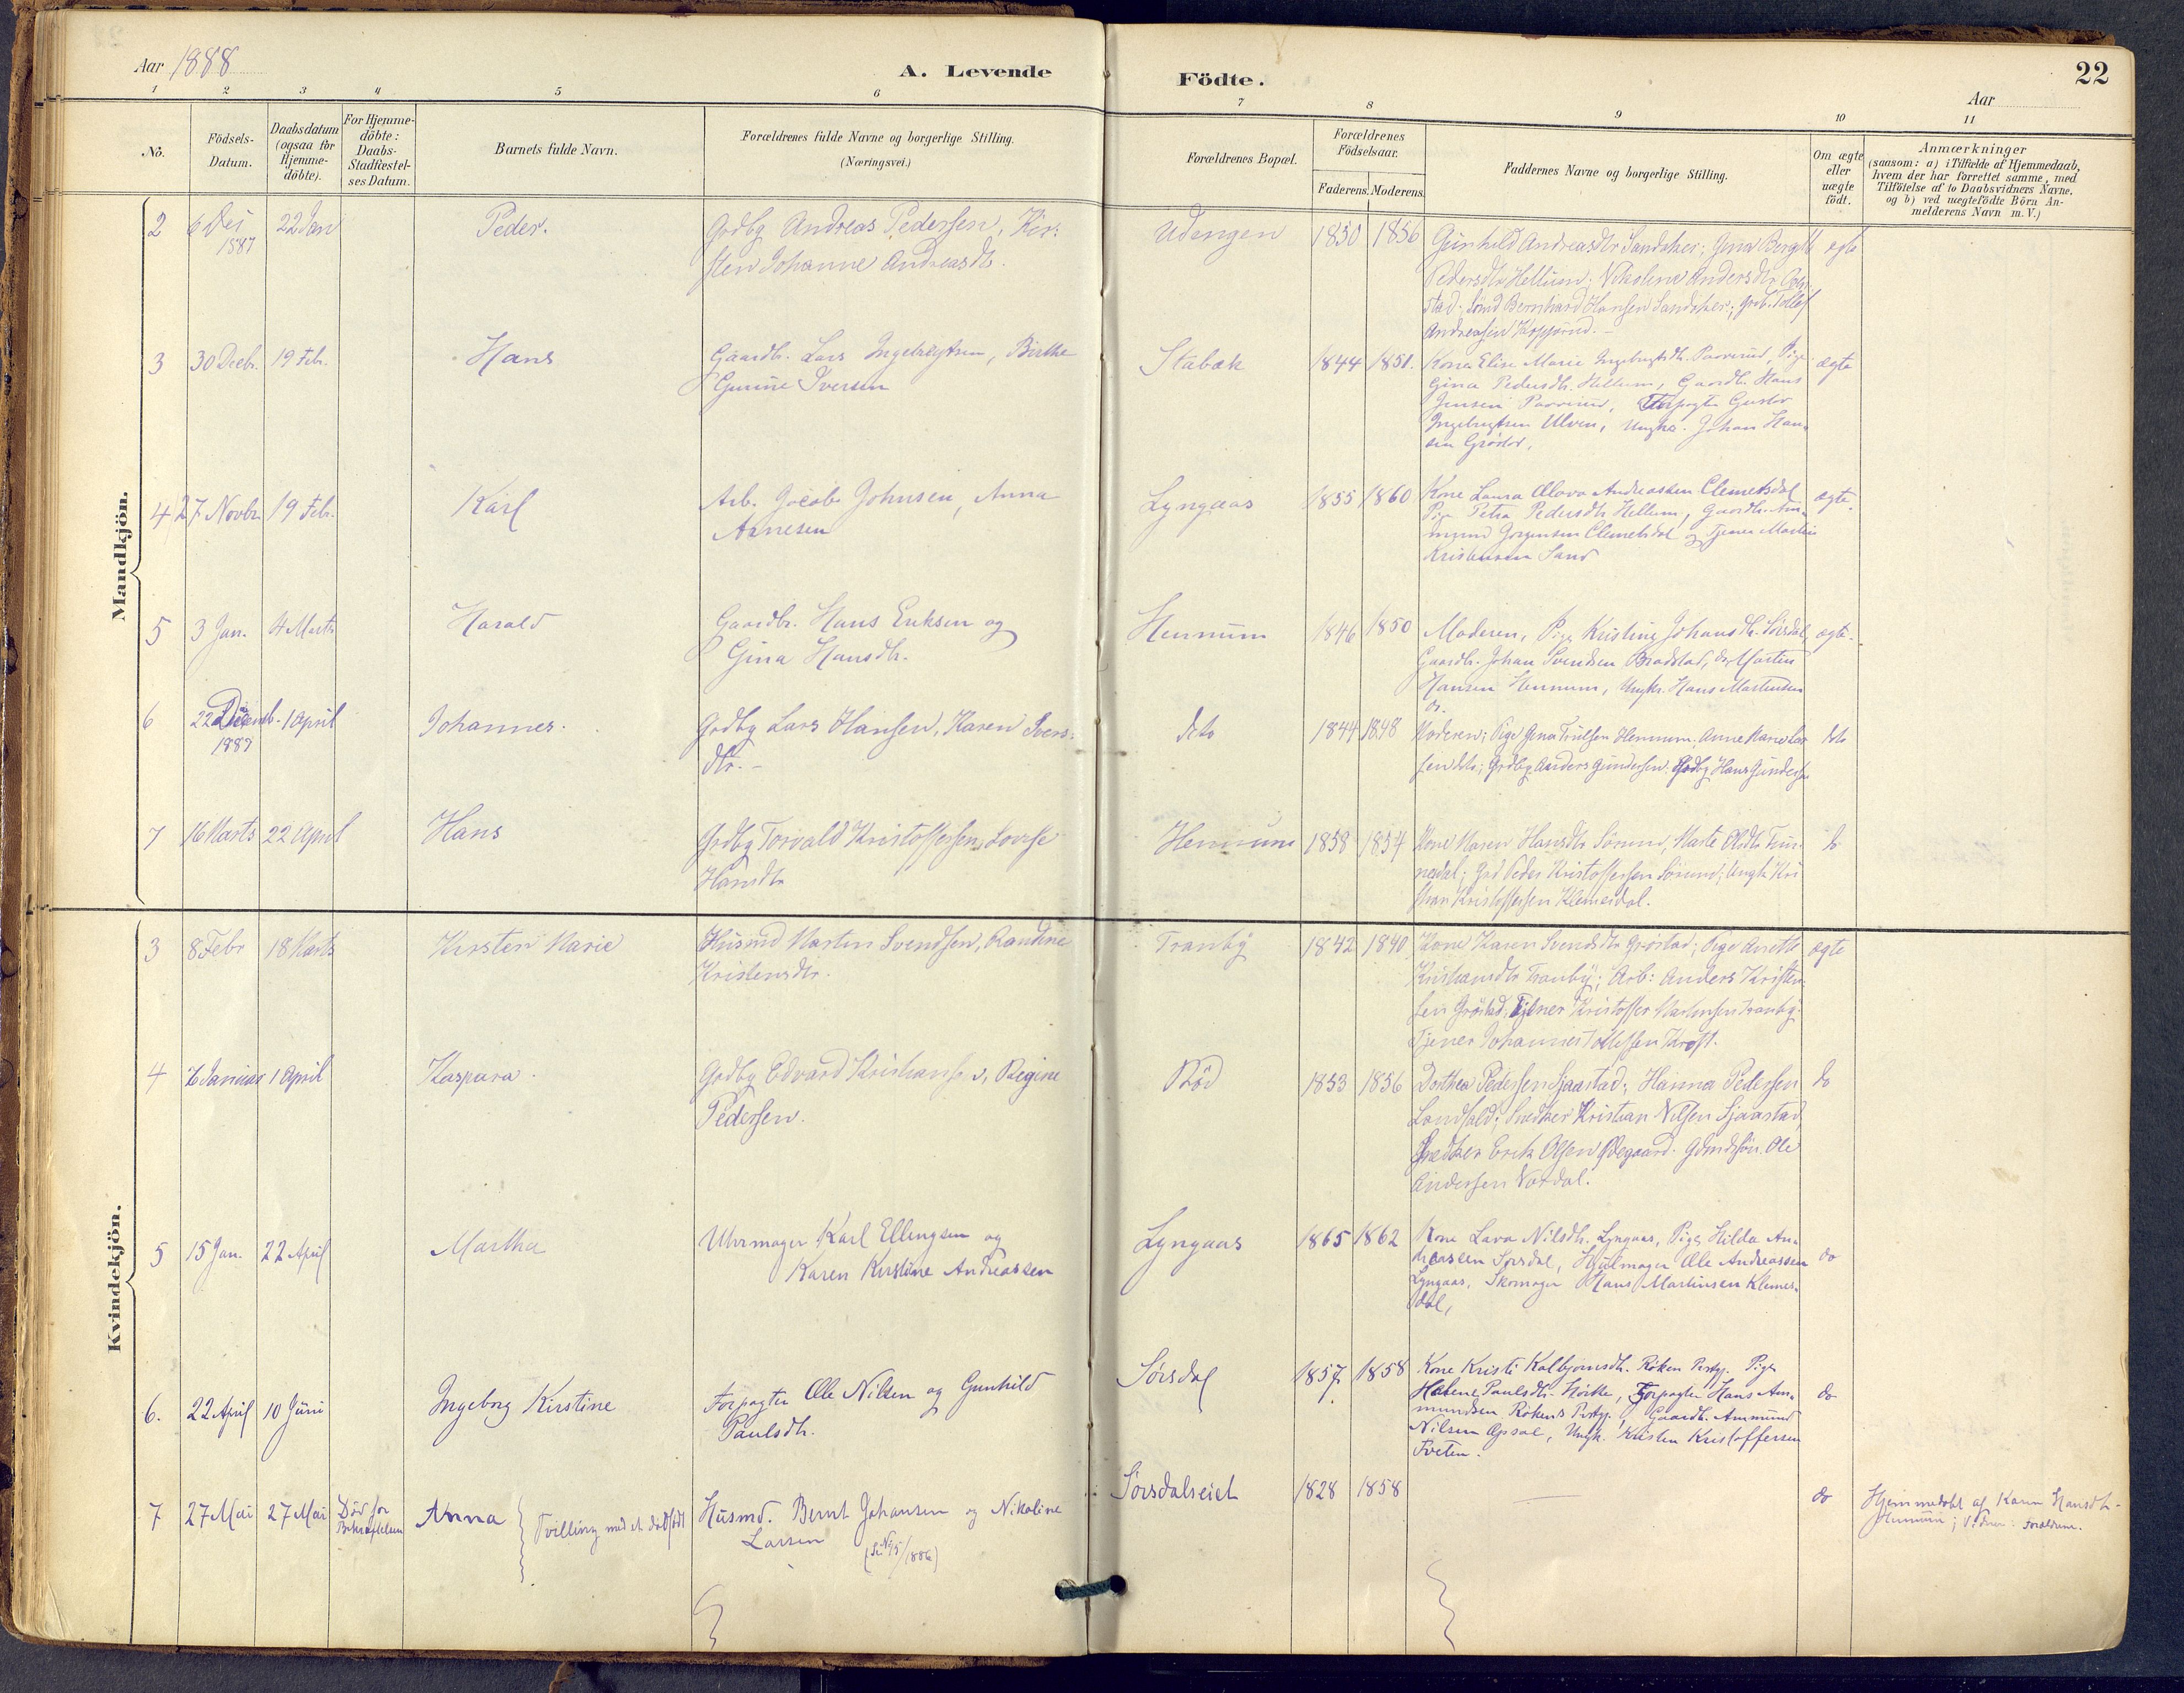 Aar 1888
A. Levende
Födte.
22
Aar
1 2 3 4 5 6 7 8 9 10 11
No.
Födsels-
Datum.
Daabsdatum
(ogsaa for
Hjemme-
döbte).
For Hjemme-
döbte:
Daabs-
Stadfæstel-
ses Datum.
Barnets fulde Navn.
Forældrenes fulde Navne og borgerlige Stilling.
(Næringsvei.)
Forældrenes Bopæl.
Forældrenes
Födselsaar.
Faderens. Moderens.
Faddernes Navne og borgerlige Stilling.
Om ægte
eller
uægte
födt.
Anmærkninger
(saasom: a) i Tilfælde af Hjemmedaab,
hvem der har forrettet samme, med
Tilföielse af to Daabsvidners Navne.
og b) ved uægtefödte Börn An-
melderens Navn m. V.)
Mandkjön.
2 6 Des 1887 22 Jan Peder.
Grdbg Andreas Pedersen, Kir-
sten Johanne Andreasdtr.
Udengen 1850 1856
Gunhild Andreasdtr Sandaker; Gina Bergitte
Pedersdtr Hellum; Nikoline Andersdtr
stad; Bernhard Hansen Sandaker;
Andreasen
egte
3 30 Decbr. 19 Febr. Hans
Gaardbr. Lars Ingebrigtsen, Birthe
Gurine Iversen
Stabæk 1844 1851.
Kone Elise Marie Ingebrigtsdtr. Paverud, Pige
Gina Pedersdtr. Hellum, Gaardbr. Hans
Jensen Paverud, Forpagter Gustav
Ingebrigtsen Ulven, Ungkr. Johan Han-
sen
ægte
4 27 Novbr. 19 Febr. Karl
Arb. Jocob Johnsen, Anna
Aanesen
Lyngaas 1855 1860
Kone Laura Olava Andreassen Clemetsdal
Pige Petra Pedersdtr Hellum, Gaardbr. Am-
mund Jørgensen Clemetsdal og Tjener Martin
Kristensen Sand
ægte.
5 3 Jan. 4 Marts Harald
Gaardbr. Hans Eriksen og
Gina Hansdtr.
Hennum 1846 1850
Moderen, Pige Kristine Johansdtr. Sörsdal,
Gaardbr. Johan Svendsen Bradstad, do Martin
Hansen Hennum, Ungkr. Hans Martinsen
do.
ægte.
6 22 Decemb. 1887 1 April Johannes.
Grdbg Lars Hansen, Karen Svens-
dtr.-
deto 1844 1848
Moderen; Pige Gina Trulsen Hennum. Anne Marie Lar
sen dto; Grdbg Anders Gundersen. Grdbg Hans Gundersen
deto
7 16 Marts 22 April Hans
Grdbg Torvald Kristoffersen, Lovise
Hansdtr
Hennum 1858 1854
Kone Maren Hansdtr Sørum, Marte Olsdtr
nedal; Grd Peder Kristoffersen Sørum; Ungk. Kri
stian Kristoffersen Klemesdal.
do
Kvindekjön.
3 8 Febr 18 Marts Kirsten Marie
Husmd Martin Svendsen, Randine
Kristensdtr.
Tranby 1842 1840
Kone Karen Svendsdtr Grøstad; Pige Anette
Kristiansdtr Tranby; Arb: Anders Kristen
sen Grøstad; Tjener Kristoffer Martinsen Tranby.
Tjener Johannes Tollefsen
ægte
4 6 Januar 1 April Kaspara.
Grdbg Edvard Kristiansen, Regine
Pedersen.
Rød 1853 1856
Dorthea Pedersen Sjaastad; Hanna Pedersen
Landfald; Snedker Kristian Nilsen Sjaastad
Snedker Erik Olsen Ødegaard. Ole
Andersen Vardal.
do
5 15 Jan. 22 April Martha
Uhrmager Karl Ellingsen og
Karen Kirstine Andreassen
Lyngaas 1865 1862
Kone Lava Nilsdtr. Lyngaas, Pige Hilda An-
dreassen Sorsdal, Hjulmager Ole Andreassen
Lyngaas, Skomager Hans Martinsen Klemes-
dal,
do
6. 22 April 10 Juni Ingeborg Kirstine
Forpagter Ole Nilsen og Gunhild
Paulsdtr.
Sörsdal 1857 1858
Kone Kristi Kolbjørnsdtr. Röken Prstg. Pige
Helene Paulsdtr. Forpagter Hans Am-
mundsen Rökens Prstg. Gaardbr. Ammund
Nilsen Opsal, Ungk. Kristen Kristoffersen
Tveten.
do
7 27 Mai 27 Mai Död for
Bekræftelsen
Anna Tvilling med et dødfødt
Husmd. Bernt Johansen og Nikoline
Larsen (Se No 5/1886)
Sörsdalseiet 1828 1858
do
Hjemmedøbt af Karen Hansdtr.
Hennum; Vidner: Forældrene.